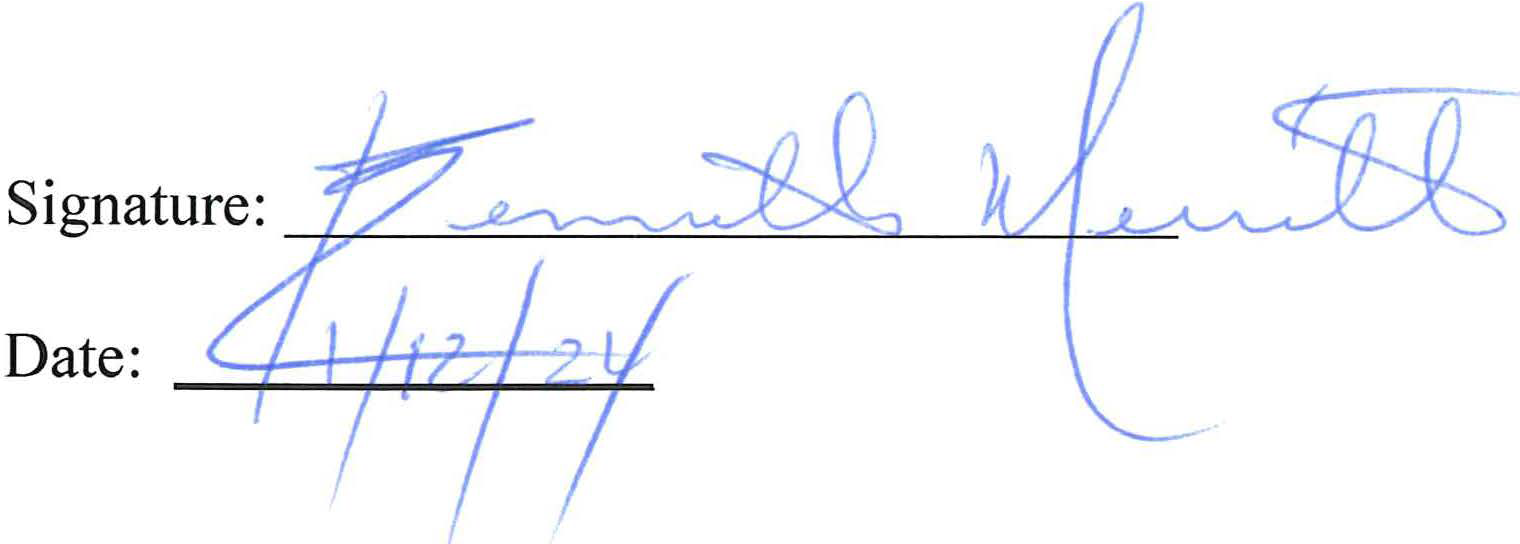 Signature: Kenneth Merritt
Date: 1/12/24